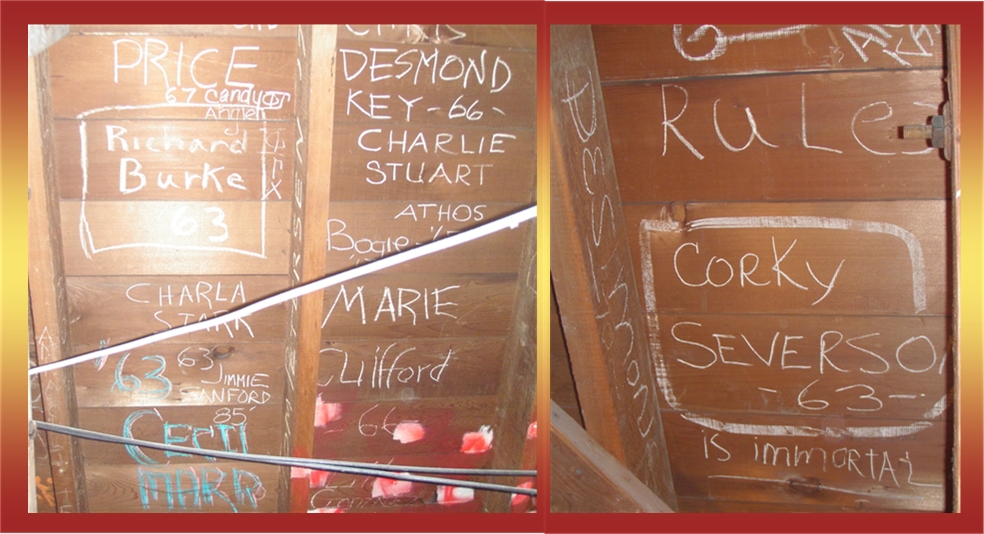 PRICE
67 Candy
Angler
Richard
Burke
63
CHARLA
STARK
63
63
JIMMIE
SANFORD
85
CECIL
MARR
DESMOND
KEY-66-
CHARLIE
STUART
ATHOS
Bogie
MARIE
Clifford
66
RULE
CORKY
SEVERSO
-63-
is immORTAL